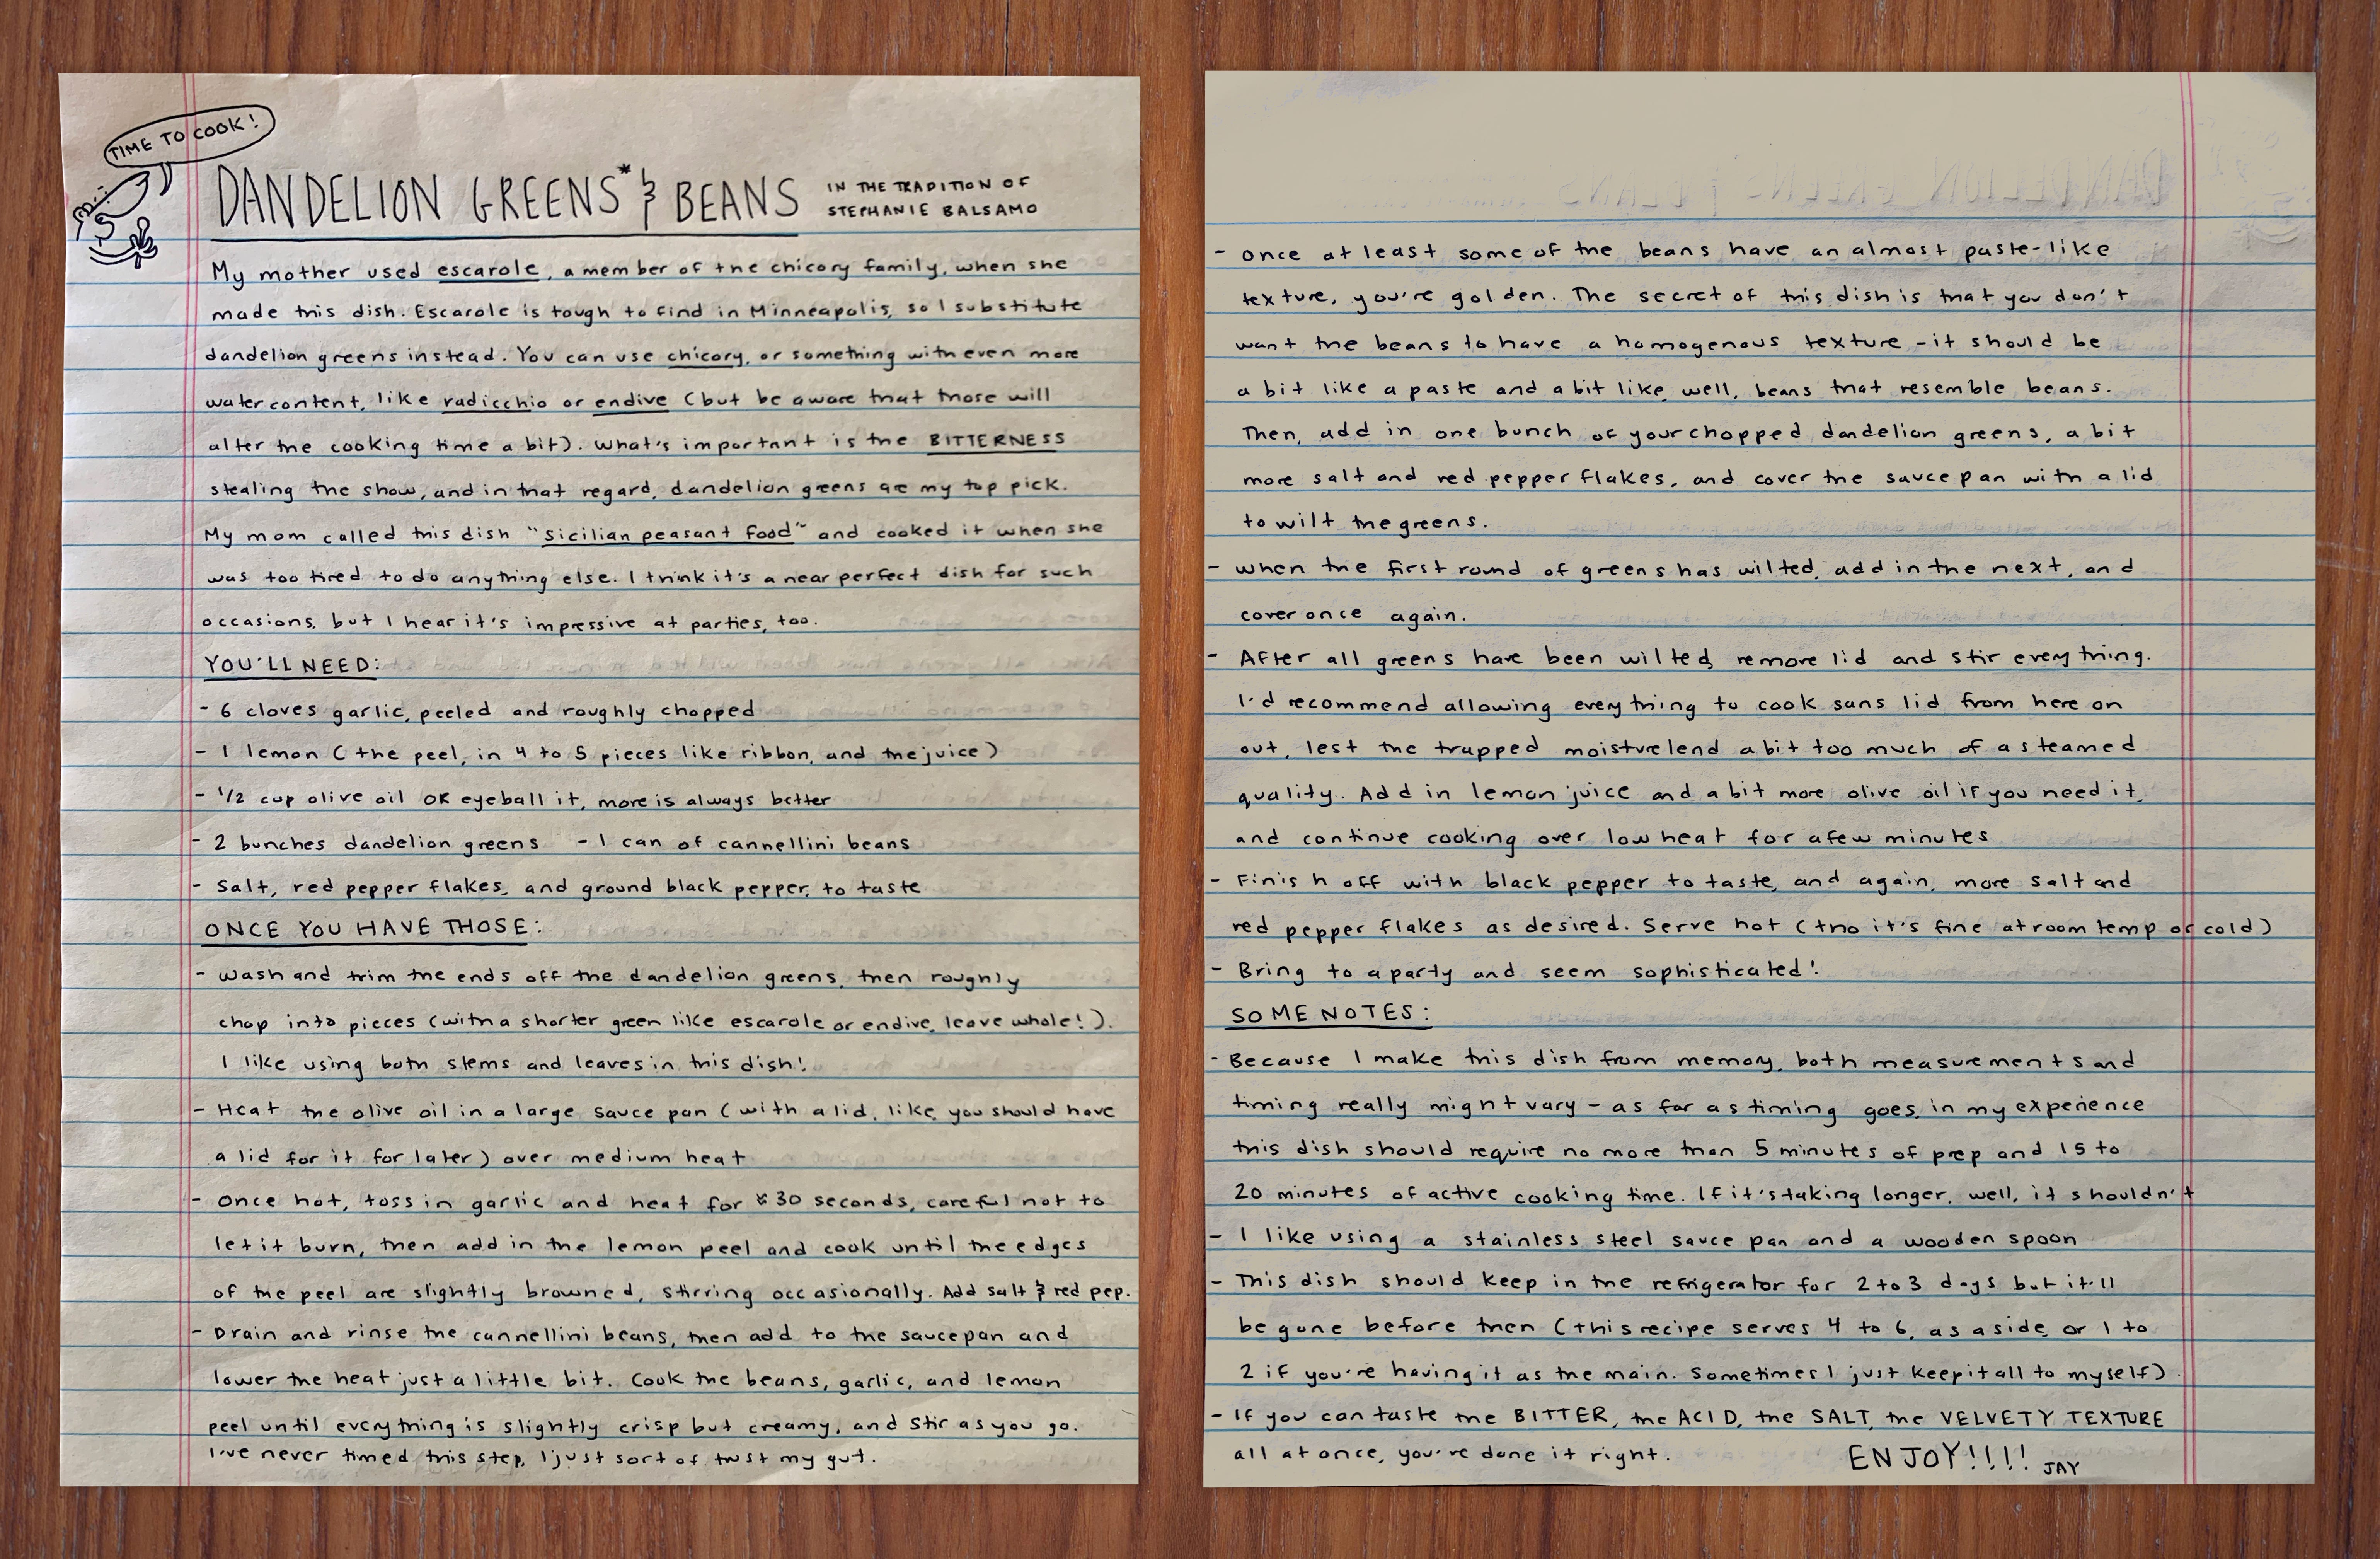 TIME TO COOK!
DANDELION GREENS* & BEANS
IN THE TRADITION OF
STEPHANIE BALSAMO
My mother used escarole, a member of the chicory family, when she
made this dish. Escarole is tough to find in Minneapolis, so I substitute
dandelion greens instead. You can use chicory, or something with even more
water content, like radicchio or endive (but be aware that those will
alter the cooking time a bit). What's important is the BITTERNESS
stealing the show, and in that regard, dandelion greens are my top pick.
My mom called this dish "Sicilian peasant food" and cooked it when she
was too tired to do anything else. I think it's a near perfect dish for such
occasions, but I hear it's impressive at parties, too.
YOU'LL NEED:
- 6 cloves garlic, peeled and roughly chopped
- 1 lemon (the peel, in 4 to 5 pieces like ribbon, and the juice)
- 1/2 cup olive oil OR eyeball it, more is always better
- 2 bunches dandelion greens - 1 can of cannellini beans
- Salt, red pepper flakes, and ground black pepper, to taste
ONCE YOU HAVE THOSE:
- Wash and trim the ends off the dandelion greens, then roughly
chop into pieces (with a shorter green like escarole or endive, leave whole!).
I like using both stems and leaves in this dish!
- Heat the olive oil in a large sauce pan (with a lid, like, you should have
a lid for it for later) over medium heat
- Once hot, toss in garlic and heat for ≈30 seconds, careful not to
let it burn, then add in the lemon peel and cook until the edges
of the peel are slightly browned, stirring occasionally. Add salt & red pep.
- Drain and rinse the cannellini beans, then add to the saucepan and
lower the heat just a little bit. Cook the beans, garlic, and lemon
peel until everything is slightly crisp but creamy, and stir as you go.
I've never timed this step, I just sort of trust my gut.
- Once at least some of the beans have an almost paste-like
texture, you're golden. The secret of this dish is that you don't
want the beans to have a homogenous texture - it should be
a bit like a paste and a bit like, well, beans that resemble beans.
Then, add in one bunch of your chopped dandelion greens, a bit
more salt and red pepper flakes, and cover the sauce pan with a lid
to wilt the greens.
- When the first round of greens has wilted, add in the next, and
cover once again.
- After all greens have been wilted, remove lid and stir everything.
I'd recommend allowing everything to cook sans lid from here on
out, lest the trapped moisture lend a bit too much of a steamed
quality. Add in lemon juice and a bit more olive oil if you need it,
and continue cooking over low heat for a few minutes
- Finish off with black pepper to taste, and again, more salt and
red pepper flakes as desired. Serve hot (tho it's fine at room temp or cold)
- Bring to a party and seem sophisticated!
SOME NOTES:
- Because I make this dish from memory, both measurements and
timing really might vary - as far as timing goes, in my experience
this dish should require no more than 5 minutes of prep and 15 to
20 minutes of active cooking time. If it's taking longer, well, it shouldn't
- I like using a stainless steel sauce pan and a wooden spoon
- This dish should keep in the refrigerator for 2 to 3 days but it'll
be gone before then (this recipe serves 4 to 6, as a side, or 1 to
2 if you're having it as the main. Sometimes I just keep it all to myself)
- If you can taste the BITTER, the ACID, the SALT, the VELVETY TEXTURE
all at once, you've done it right.
ENJOY!!!! JAY